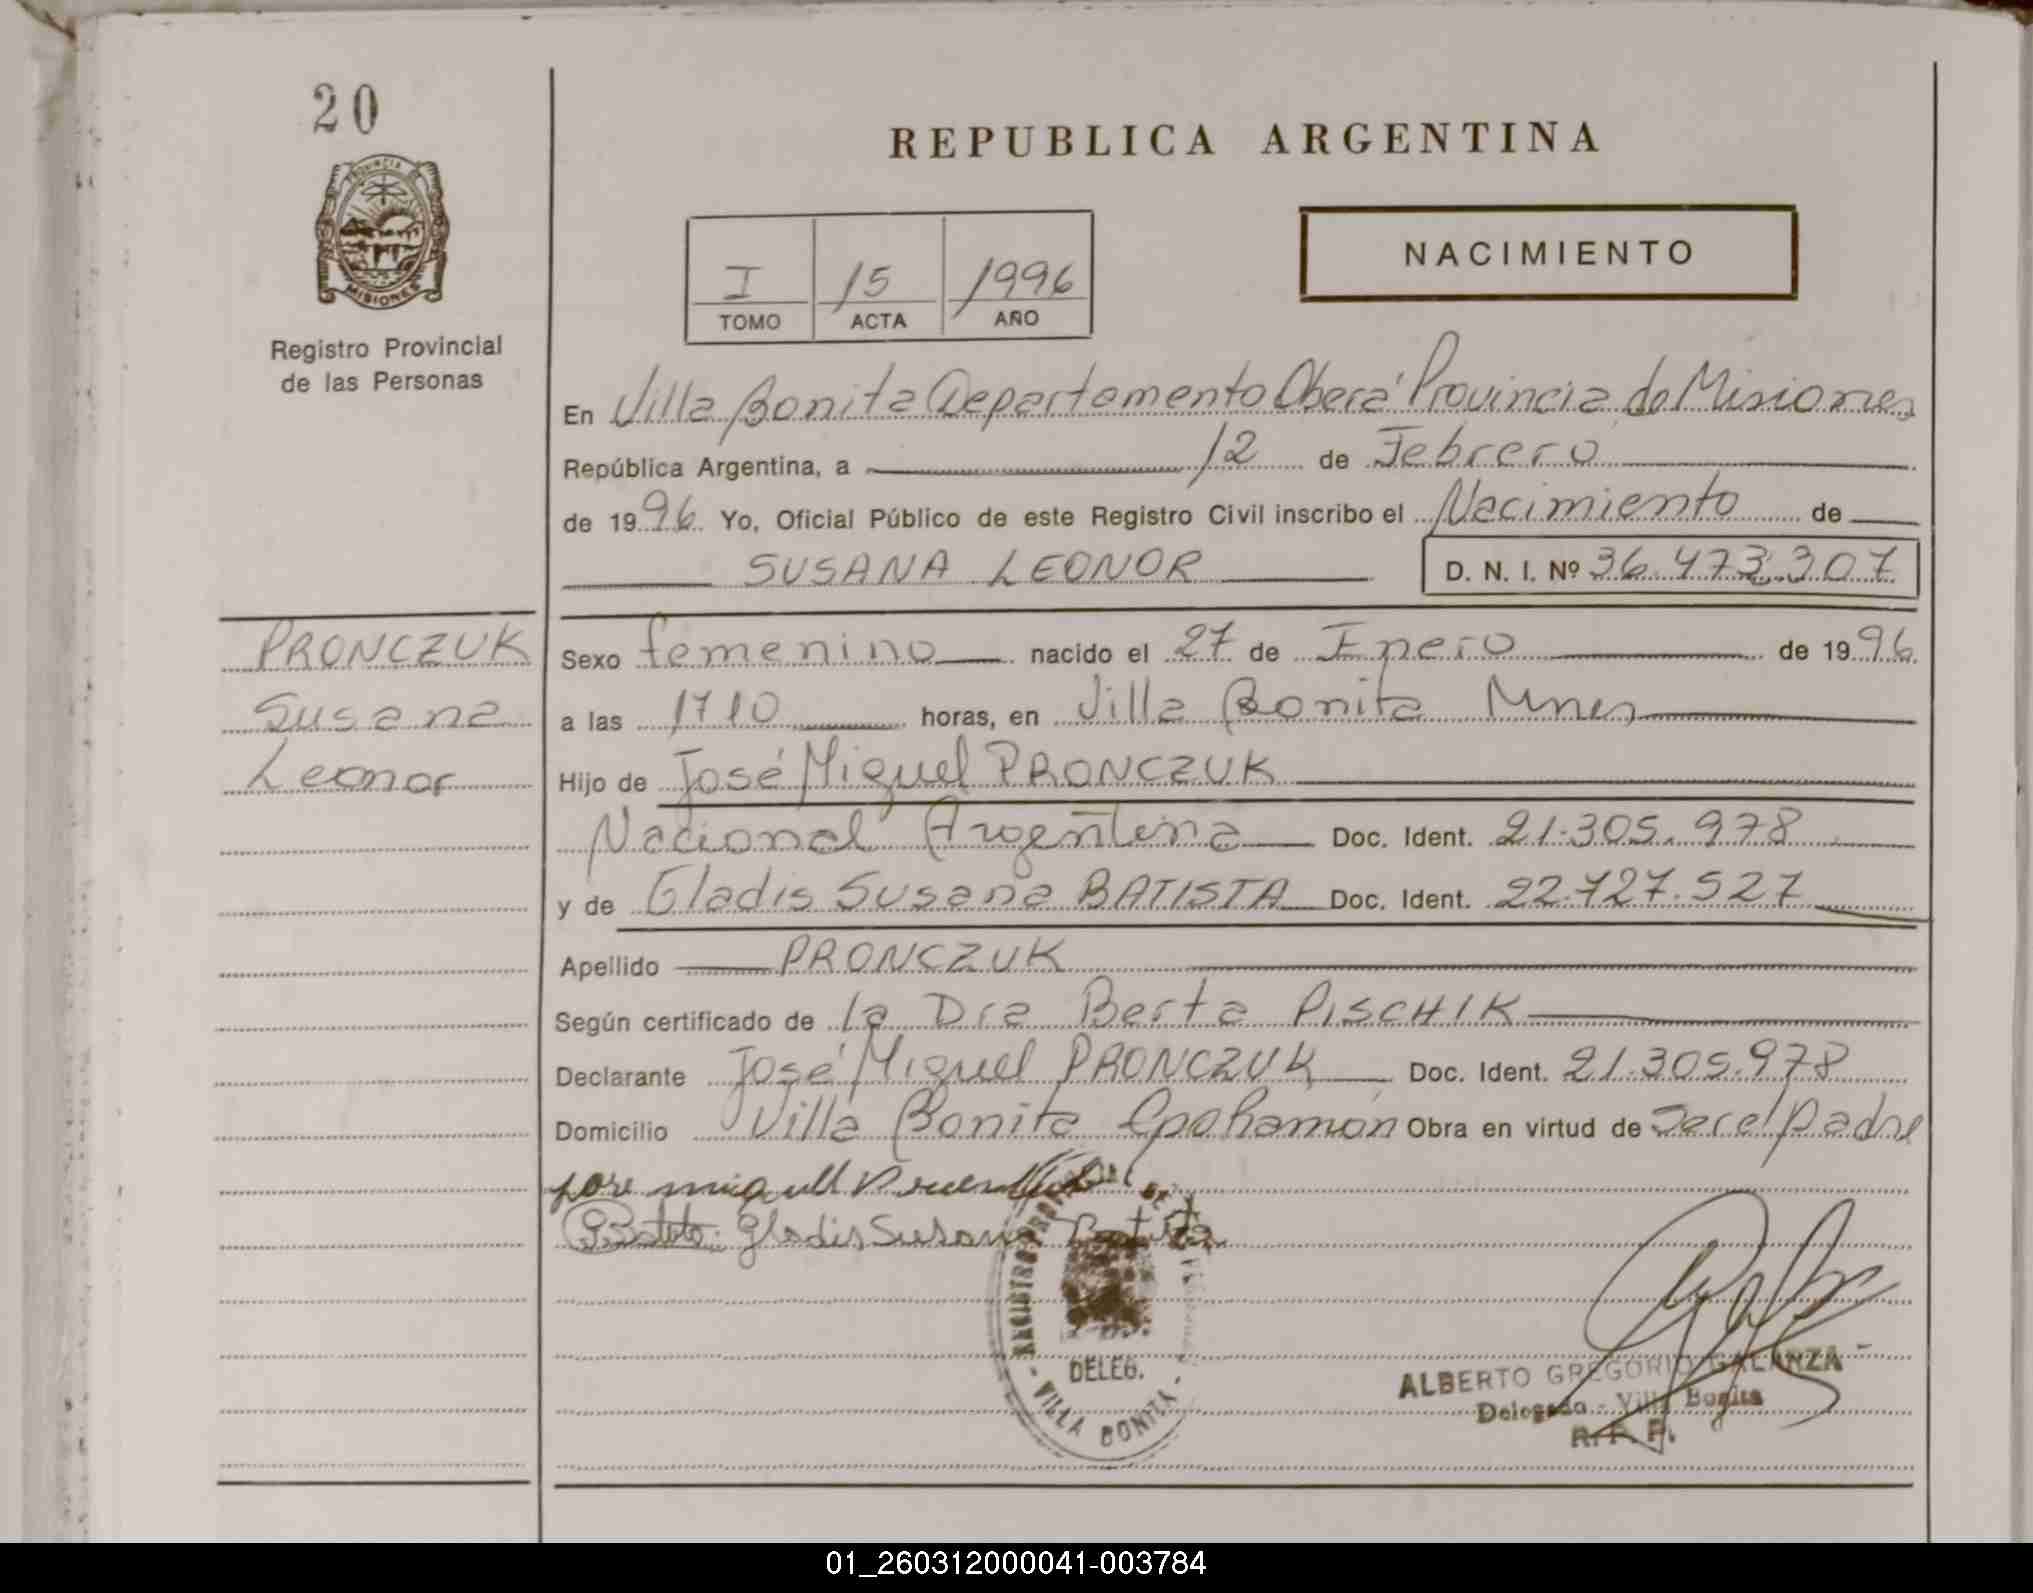 20
REPUBLICA ARGENTINA
PROVINCIA DE
MISIONES
Registro Provincial
de las Personas
I 15 1996
TOMO ACTA AÑO
NACIMIENTO
En Villa Bonita Departamento Oberá Provincia de Misiones
República Argentina, a 12 de Febrero
de 1996 Yo, Oficial Público de este Registro Civil inscribo el Nacimiento de
SUSANA LEONOR D. N. I. Nº 36.473.307
PRONCZUK
Susana
Leonor
Sexo femenino nacido el 27 de Enero de 1996
a las 1710 horas, en Villa Bonita Mnes
Hijo de José Miguel PRONCZUK
Nacional Argentina Doc. Ident. 21.305.978
y de Gladis Susana BATISTA Doc. Ident. 22.727.527
Apellido PRONCZUK
Según certificado de la Dra Berta PISCHIK
Declarante José Miguel PRONCZUK Doc. Ident. 21.305.978
Domicilio Villa Bonita Cpo Ramón Obra en virtud de Ser el padre
jose miguel
Gladis Susana Batista
DELEG.
- VILLA BONITA -
ALBERTO GREGORIO GALARZA
Delegado - Villa Bonita
R. P. P.
01_260312000041-003784